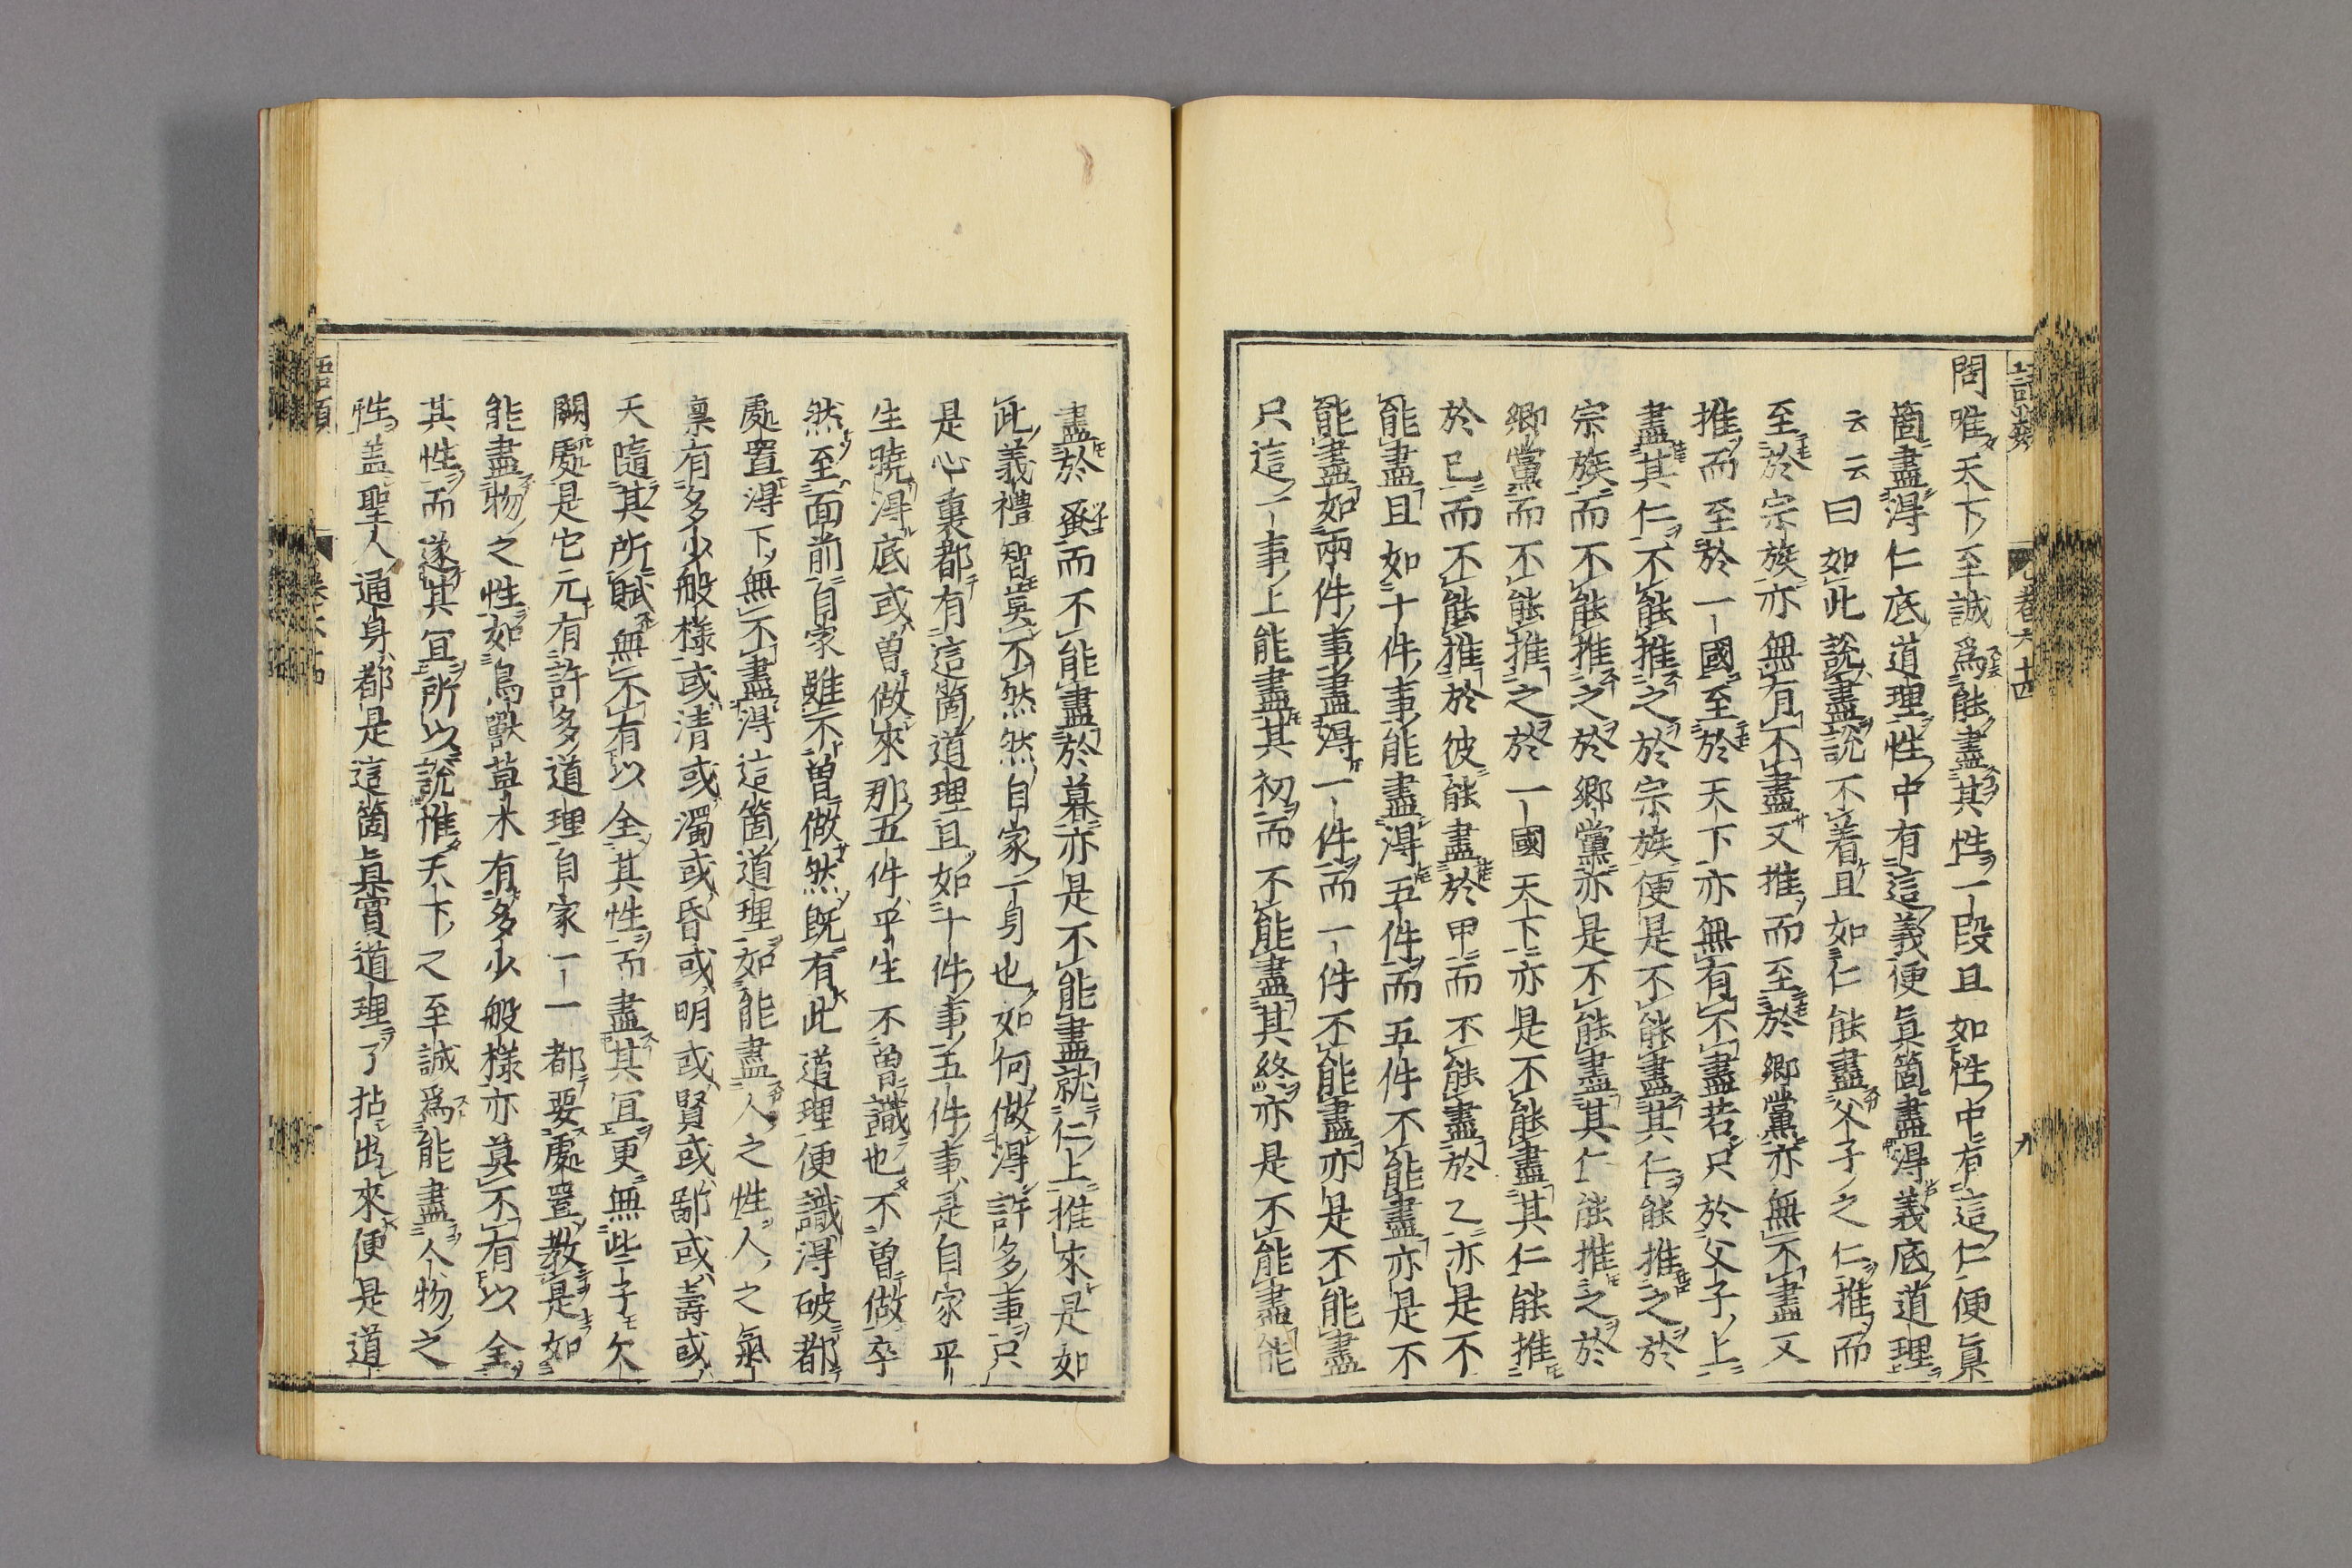 語類
卷六十四
九
問唯天下至誠爲能盡其性一段且如性中有這仁便眞
箇盡得仁底道理性中有這義便眞箇盡得義底道理
云云曰如此說盡說不着且如仁能盡父子之仁推而
至於宗族亦無有不盡又推而至於鄉黨亦無不盡又
推而至於一國至於天下亦無有不盡若只於父子上
盡其仁不能推之於宗族便是不能盡其仁能推之於
宗族而不能推之於鄉黨亦是不能盡其仁能推之於
鄉黨而不能推之於一國天下亦是不能盡其仁能推
於己而不能推於彼能盡於甲而不能盡於乙亦是不
能盡且如十件事能盡得五件而五件不能盡亦是不
能盡如兩件事盡得一件而一件不能盡亦是不能盡
只這一事上能盡其初而不能盡其終亦是不能盡能
盡於蚤而不能盡於暮亦是不能盡就仁上推來是如
此義禮智莫不然然自家一身也如何做得許多事只
是心裏都有這箇道理且如十件事五件事是自家平
生曉得底或曾做來那五件平生不曾識也不曾做卒
然至面前自家雖不曾做然旣有此道理便識得破都
處置得下無不盡得這箇道理如能盡人之性人之氣
禀有多少般樣或清或濁或昏或明或賢或鄙或壽或
夭隨其所賦無不有以全其性而盡其宜更無些子欠
闕處是它元有許多道理自家一一都要處置敎是如
能盡物之性如鳥獸草木有多少般樣亦莫不有以全
其性而遂其宜所以說惟天下之至誠爲能盡人物之
性盖聖人通身都是這箇眞實道理了拈出來便是道
語類